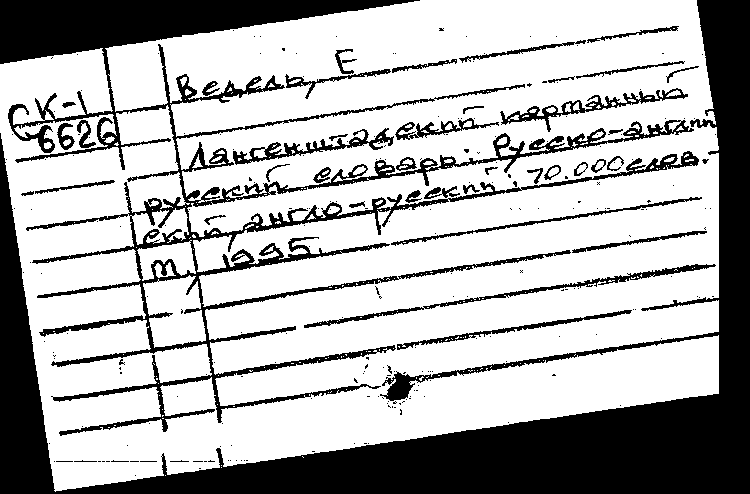 Ведель, Е
СК-1
6626
Лангенштадский карманный
русский словарь: Русско-англий
ский, англо-русский: 70.000 слов.-
м, 1995.